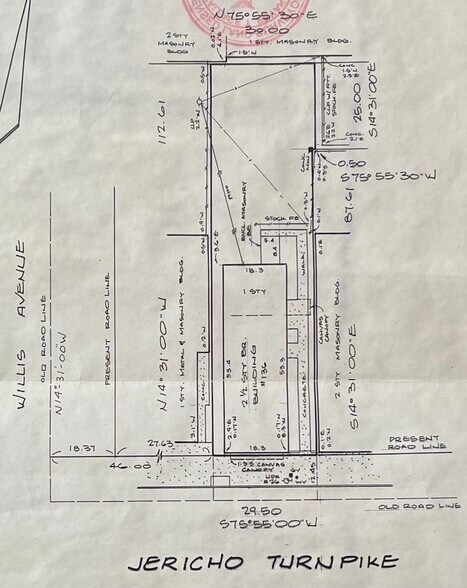 N 75° 55' 30" E
30.00
2 STY
MASONRY
BLDG
1 STY. MASONRY BLDG.
1.5'N
CONC
25.00
S14° 31' 00" E
112.61
0.50
S75° 55' 30" W
87.61
STOCK FE
5.4
8.4
WALK
18.3
1 STY
WILLIS AVENUE
OLD ROAD LINE
N14°-31'-00" W
PRESENT ROAD LINE
N14° 31' 00" W
1 STY. METAL & MASONRY BLDG.
CONC.
53.4
2 1/2 STY BR.
BUILDING
#136
53.3
CONCRETE
CANVAS
CANOPY
2 STY MASONRY BLDG.
S14° 31' 00" E
18.37
27.63
46.00
18.3
CANVAS
CANOPY
12.45
PRESENT
ROAD LINE
29.50
S75° 55' 00" W
OLD ROAD LINE
JERICHO TURNPIKE